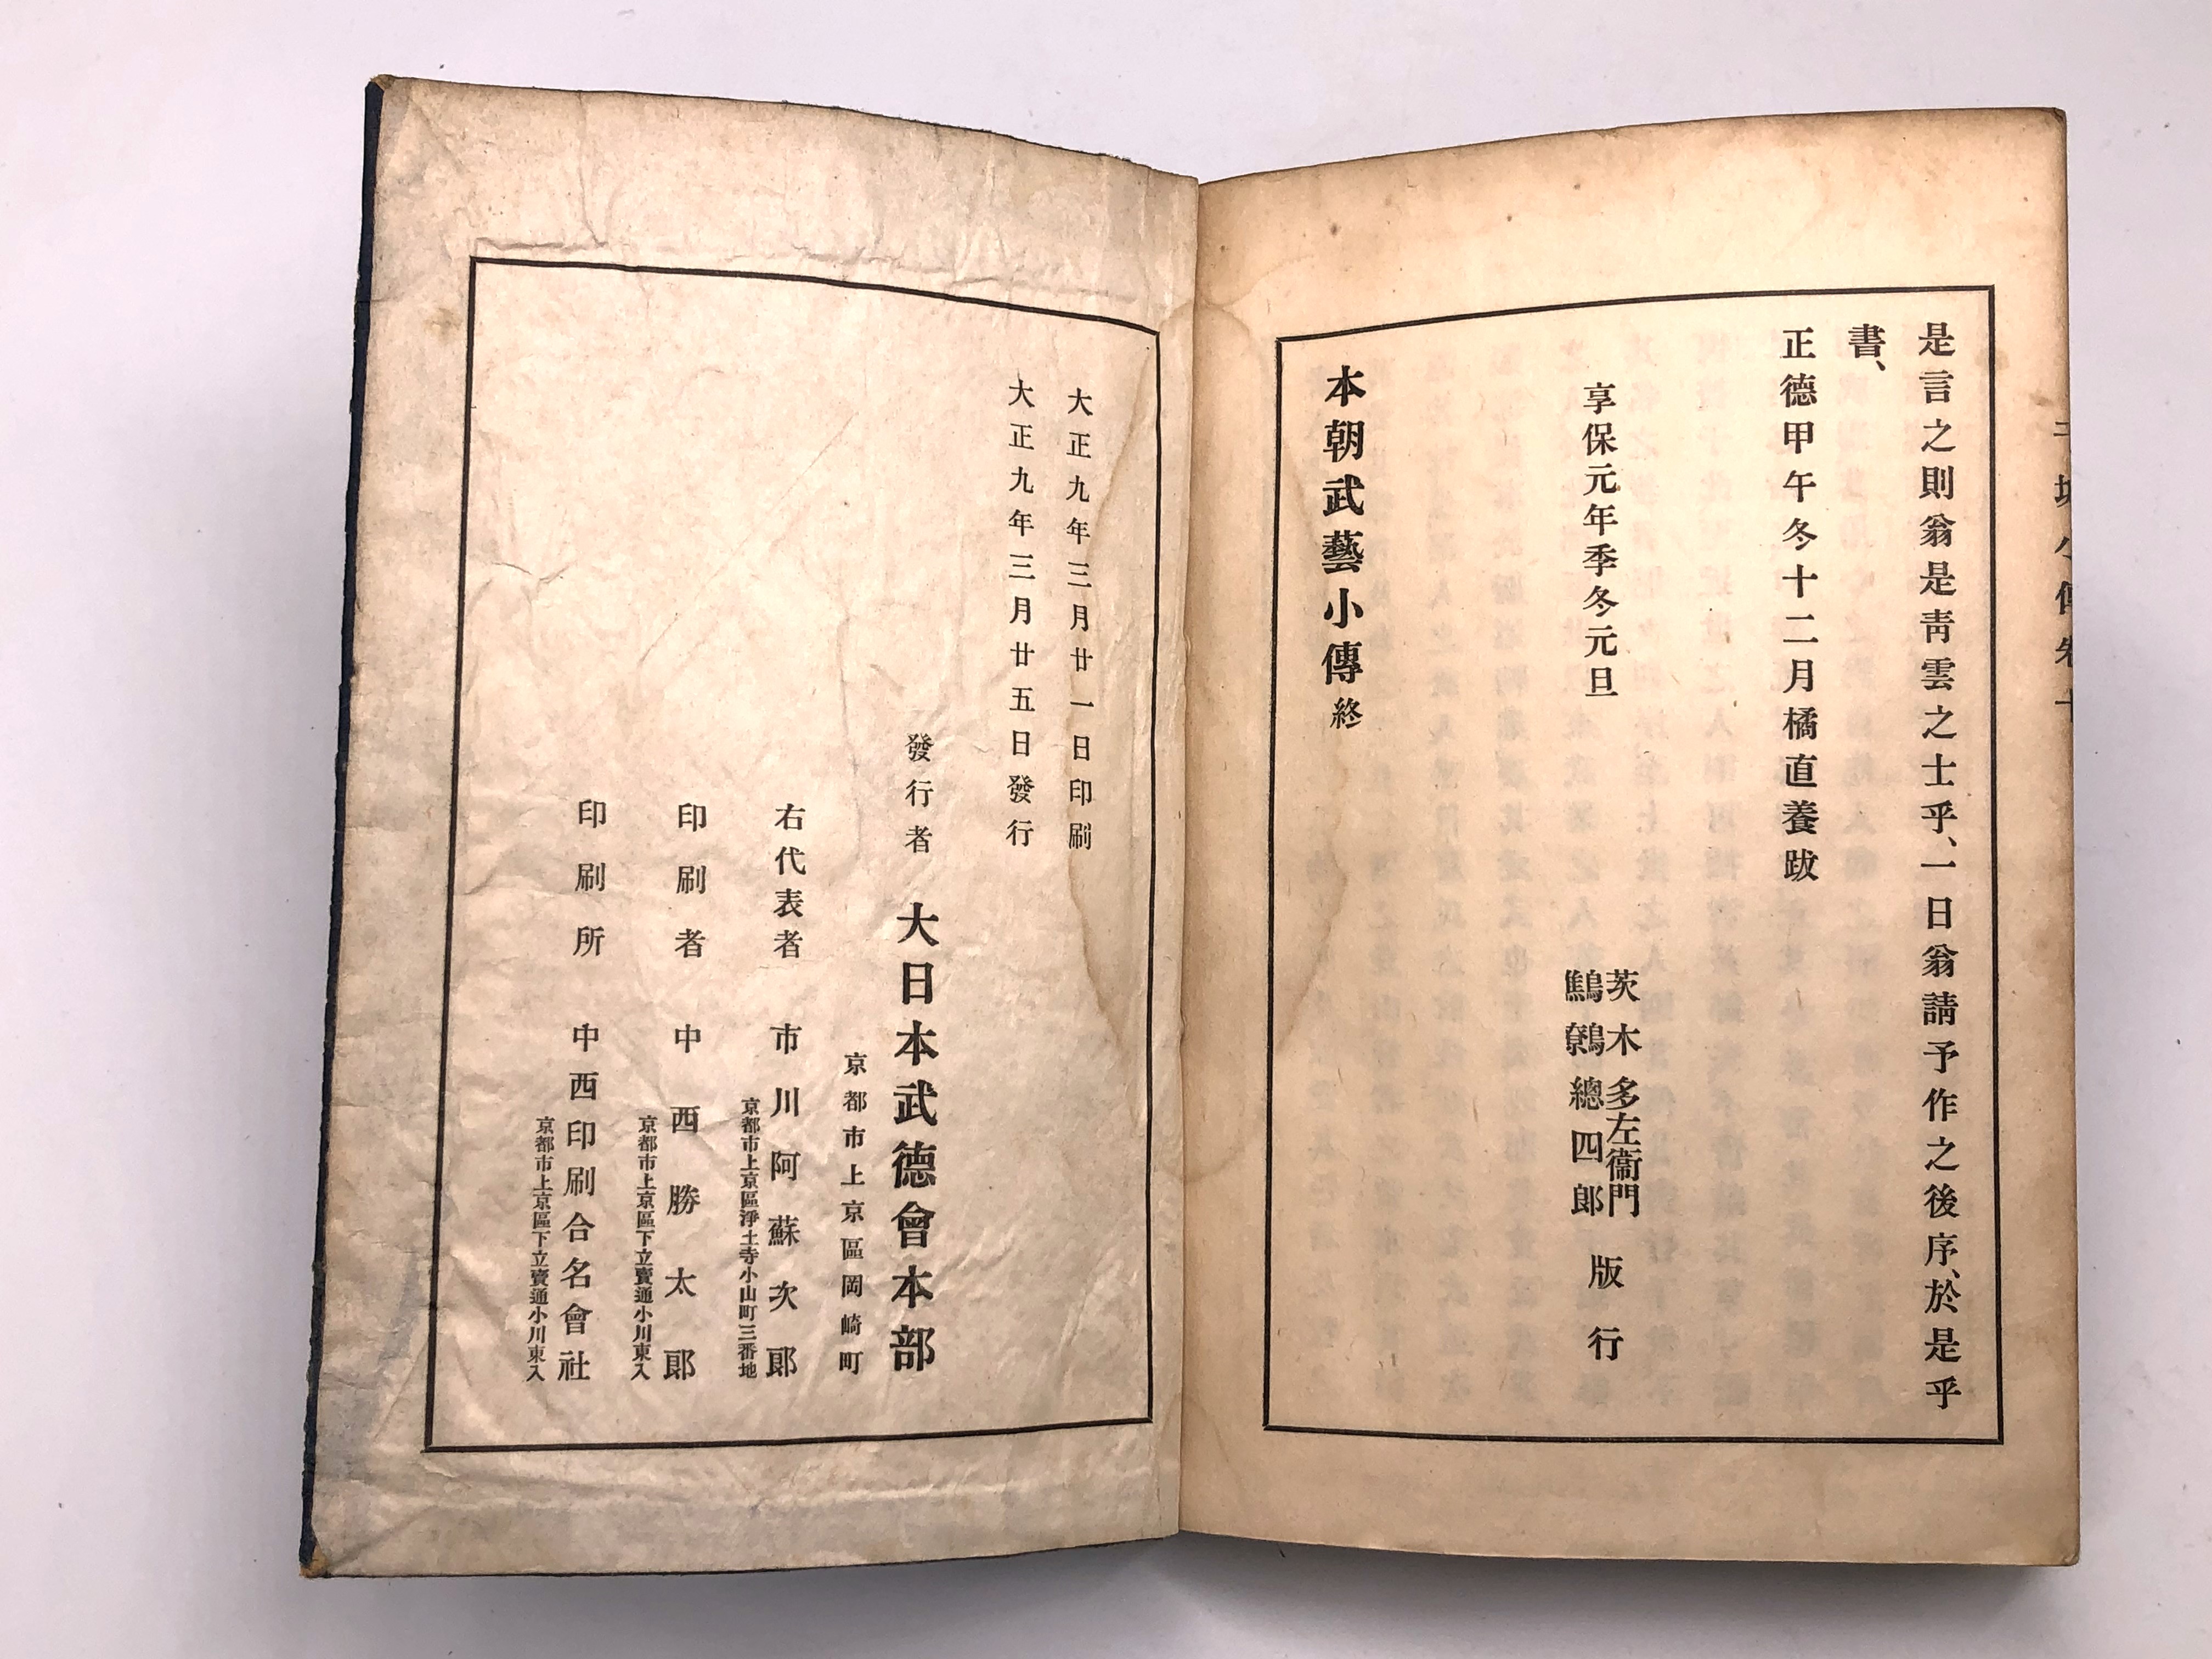 是言之則翁是靑雲之士乎、一日翁請予作之後序、於是乎
書、
正德甲午冬十二月橘直養跋
享保元年季冬元旦
茨木多左衞門
鷦鷯總四郎
版行
本朝武藝小傳終
大正九年三月廿一日印刷
大正九年三月廿五日發行
發行者 大日本武德會本部
京都市上京區岡崎町
右代表者 市川阿蘇次郎
京都市上京區淨土寺小山町三番地
印刷者 中西勝太郎
京都市上京區下立賣通小川東入
印刷所 中西印刷合名會社
京都市上京區下立賣通小川東入